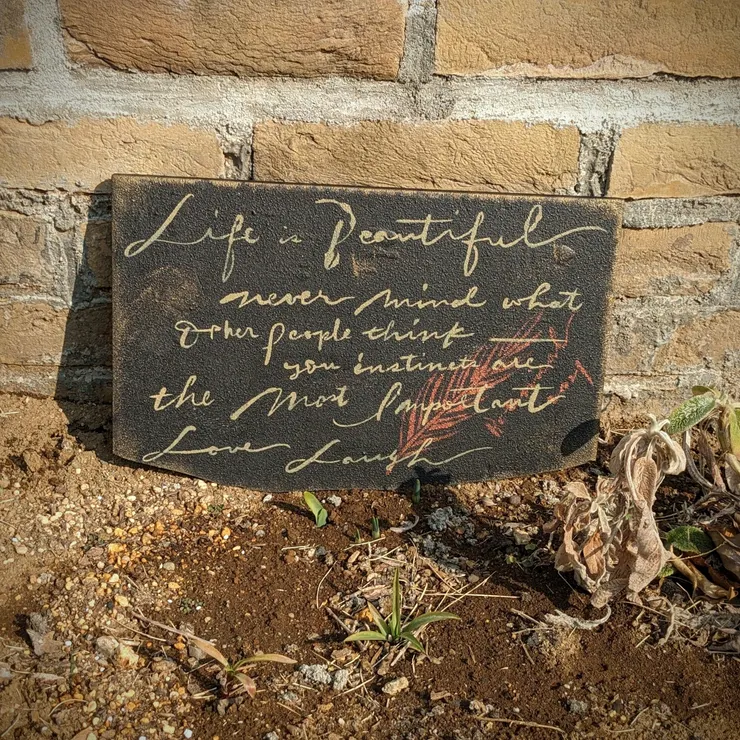 Life is Beautiful
never mind what
Other people think
you instincts are
the Most Important
Love Laugh